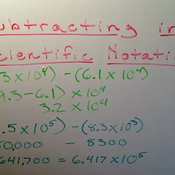 Subtracting in
Scientific Notati
.3 x 10⁴) - (6.1 x 10⁴)
9.3-6.1) x 10⁴
3.2 x 10⁴
.5x10⁵) - (8.3x10³)
50,000 - 8300
641,700 = 6.417 x 10⁵